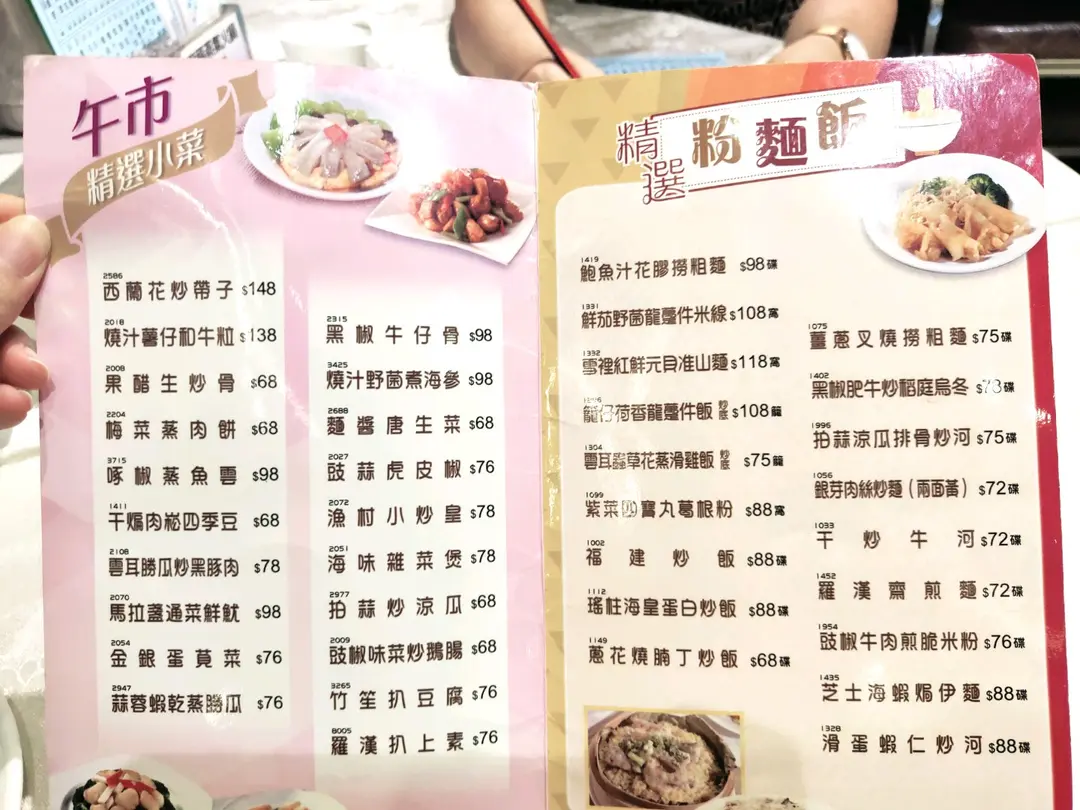 午市
精選小菜
2586
西蘭花炒帶子 $148
2018
燒汁薯仔和牛粒 $138
2008
果醋生炒骨 $68
2204
梅菜蒸肉餅 $68
3715
啄椒蒸魚雲 $98
1411
干焗肉崧四季豆 $68
2108
雲耳勝瓜炒黑豚肉 $78
2070
馬拉盞通菜鮮魷 $98
2054
金銀蛋莧菜 $76
2947
蒜蓉蝦乾蒸勝瓜 $76
2315
黑椒牛仔骨 $98
3425
燒汁野菌煮海參 $98
2688
麵醬唐生菜 $68
2027
豉蒜虎皮椒 $76
2072
漁村小炒皇 $78
2051
海味雜菜煲 $78
2977
拍蒜炒涼瓜 $68
2009
豉椒味菜炒鵝腸 $68
3265
竹笙扒豆腐 $76
8005
羅漢扒上素 $76
精選 粉麵飯
1419
鮑魚汁花膠撈粗麵 $98碟
1331
鮮茄野菌龍躉件米線 $108窩
1332
雪裡紅鮮元貝准山麵 $118窩
籠仔荷香龍躉件飯 炒底 $108籠
1304
雲耳蟲草花蒸滑雞飯 炒底 $75籠
1099
紫菜四寶丸葛根粉 $88窩
1002
福建炒飯 $88碟
1112
瑤柱海皇蛋白炒飯 $88碟
1149
蔥花燒腩丁炒飯 $68碟
1075
薑蔥叉燒撈粗麵 $75碟
1402
黑椒肥牛炒稻庭烏冬 $78碟
1996
拍蒜涼瓜排骨炒河 $75碟
1056
銀芽肉絲炒麵(兩面黃) $72碟
1033
干炒牛河 $72碟
1452
羅漢齋煎麵 $72碟
1954
豉椒牛肉煎脆米粉 $76碟
1435
芝士海蝦焗伊麵 $88碟
1328
滑蛋蝦仁炒河 $88碟